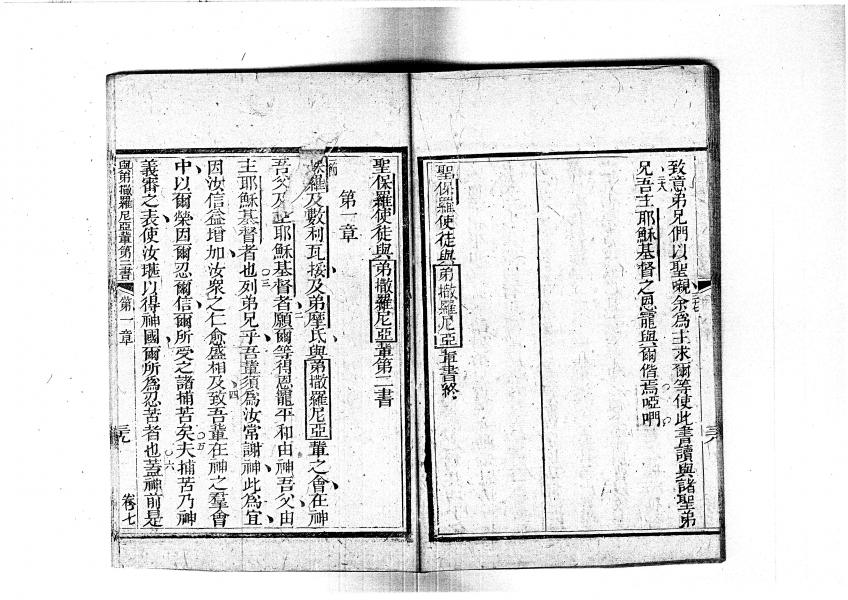 致意弟兄們以聖䞉余為主求爾等使此書讀與諸聖弟
兄吾主耶穌基督之恩寵與爾偕焉啞們
聖保羅使徒與弟撒羅尼亞輩書終
聖保羅使徒與弟撒羅尼亞輩第二書
第一章
保羅及數利瓦接及弟摩氏與弟撒羅尼亞輩之會在神
吾父及主耶穌基督者願爾等得恩寵平和由神吾父由
主耶穌基督者也列弟兄乎吾輩須為汝常謝神此為宜
因汝信益增加汝眾之仁愈盛相及致吾輩在神之羣會
中以爾榮因爾忍爾信爾所受之諸捕苦矣夫捕苦乃神
義審之表使汝堪以得神國爾所為忍苦者也蓋神前是
與弟撒羅尼亞輩第二書 第一章 卷七